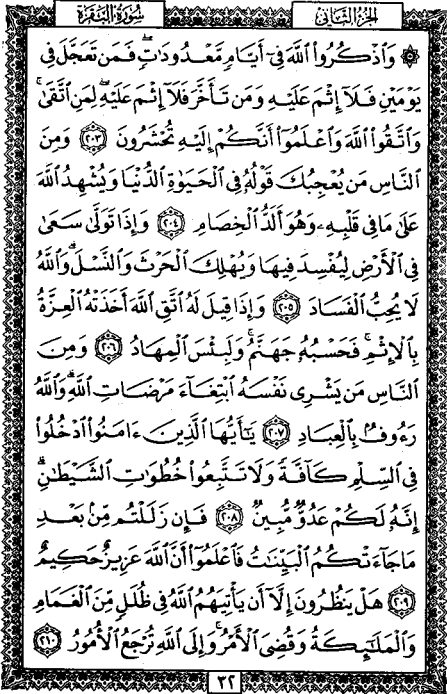 الجزء الثاني
سورة البقرة
۞ وَٱذْكُرُوا۟ ٱللَّهَ فِىٓ أَيَّامٍ مَّعْدُودَٰتٍ فَمَن تَعَجَّلَ فِى
يَوْمَيْنِ فَلَآ إِثْمَ عَلَيْهِ وَمَن تَأَخَّرَ فَلَآ إِثْمَ عَلَيْهِ لِمَنِ ٱتَّقَىٰ
وَٱتَّقُوا۟ ٱللَّهَ وَٱعْلَمُوٓا۟ أَنَّكُمْ إِلَيْهِ تُحْشَرُونَ ٢٠٣ وَمِنَ
ٱلنَّاسِ مَن يُعْجِبُكَ قَوْلُهُۥ فِى ٱلْحَيَوٰةِ ٱلدُّنْيَا وَيُشْهِدُ ٱللَّهَ
عَلَىٰ مَا فِى قَلْبِهِۦ وَهُوَ أَلَدُّ ٱلْخِصَامِ ٢٠٤ وَإِذَا تَوَلَّىٰ سَعَىٰ
فِى ٱلْأَرْضِ لِيُفْسِدَ فِيهَا وَيُهْلِكَ ٱلْحَرْثَ وَٱلنَّسْلَ وَٱللَّهُ
لَا يُحِبُّ ٱلْفَسَادَ ٢٠٥ وَإِذَا قِيلَ لَهُ ٱتَّقِ ٱللَّهَ أَخَذَتْهُ ٱلْعِزَّةُ
بِٱلْإِثْمِ فَحَسْبُهُۥ جَهَنَّمُ وَلَبِئْسَ ٱلْمِهَادُ ٢٠٦ وَمِنَ
ٱلنَّاسِ مَن يَشْرِى نَفْسَهُ ٱبْتِغَآءَ مَرْضَاتِ ٱللَّهِ وَٱللَّهُ
رَءُوفٌۢ بِٱلْعِبَادِ ٢٠٧ يَٰٓأَيُّهَا ٱلَّذِينَ ءَامَنُوا۟ ٱدْخُلُوا۟
فِى ٱلسِّلْمِ كَآفَّةً وَلَا تَتَّبِعُوا۟ خُطُوَٰتِ ٱلشَّيْطَٰنِ
إِنَّهُۥ لَكُمْ عَدُوٌّ مُّبِينٌ ٢٠٨ فَإِن زَلَلْتُم مِّنۢ بَعْدِ
مَا جَآءَتْكُمُ ٱلْبَيِّنَٰتُ فَٱعْلَمُوٓا۟ أَنَّ ٱللَّهَ عَزِيزٌ حَكِيمٌ
٢٠٩ هَلْ يَنظُرُونَ إِلَّآ أَن يَأْتِيَهُمُ ٱللَّهُ فِى ظُلَلٍ مِّنَ ٱلْغَمَامِ
وَٱلْمَلَٰٓئِكَةُ وَقُضِىَ ٱلْأَمْرُ وَإِلَى ٱللَّهِ تُرْجَعُ ٱلْأُمُورُ ٢١٠
٣٢